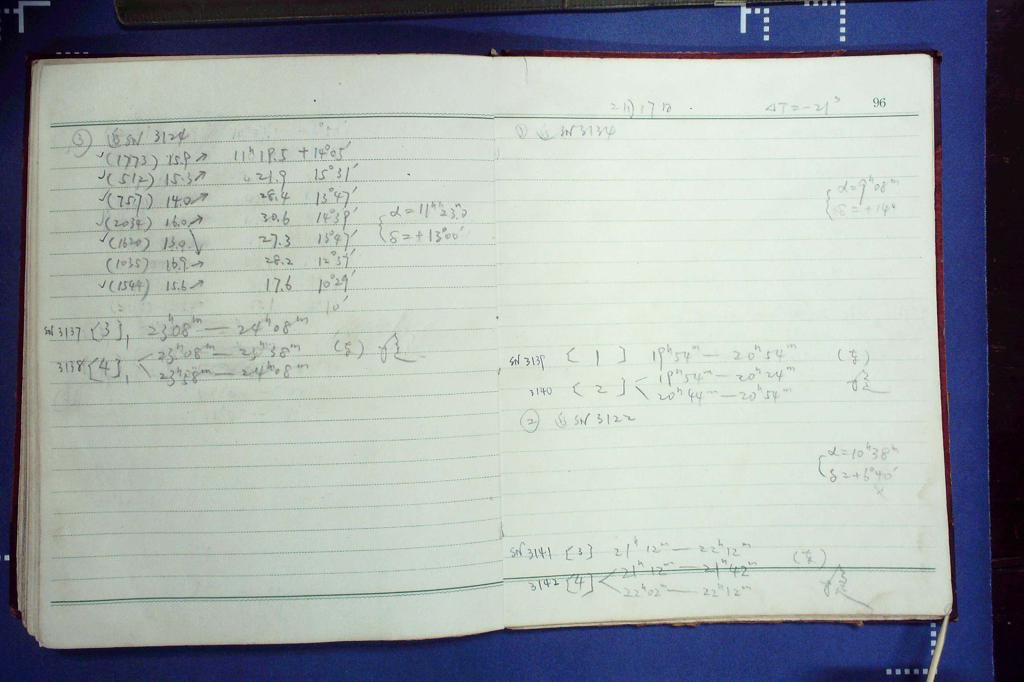 ③ SN 3124
√(1773) 15.9↗ 11ʰ19.5 +14°05′
√(512) 15.3↗ 21.9 15°31′
√(757) 14.0↗ 28.4 13°47′
√(2034) 16.0↗ 30.6 14°39′
√(1620) 13.0 27.3 13°47′
(1035) 16.9→ 28.2 12°37′
√(1544) 15.6↗ 17.6 10°29′
{α=11ʰ23ᵐ0
δ=+13°00′
SN 3137 [3], 23ʰ08ᵐ — 24ʰ08ᵐ
3138 [4], < 23ʰ08ᵐ — 23ʰ38ᵐ
23ʰ58ᵐ — 24ʰ08ᵐ
2月17日 ΔT=-21ˢ 96
① SN 3134
{α=9ʰ08ᵐ
δ=+14°
SN 3139 [1] 19ʰ54ᵐ — 20ʰ54ᵐ
3140 [2] < 19ʰ54ᵐ — 20ʰ24ᵐ
20ʰ44ᵐ — 20ʰ54ᵐ
② SN 3122
{α=10ʰ38ᵐ
δ=+6°40′
SN 3141 [3] 21ʰ12ᵐ — 22ʰ12ᵐ
3142 [4] < 21ʰ12ᵐ — 21ʰ42ᵐ
22ʰ02ᵐ — 22ʰ12ᵐ